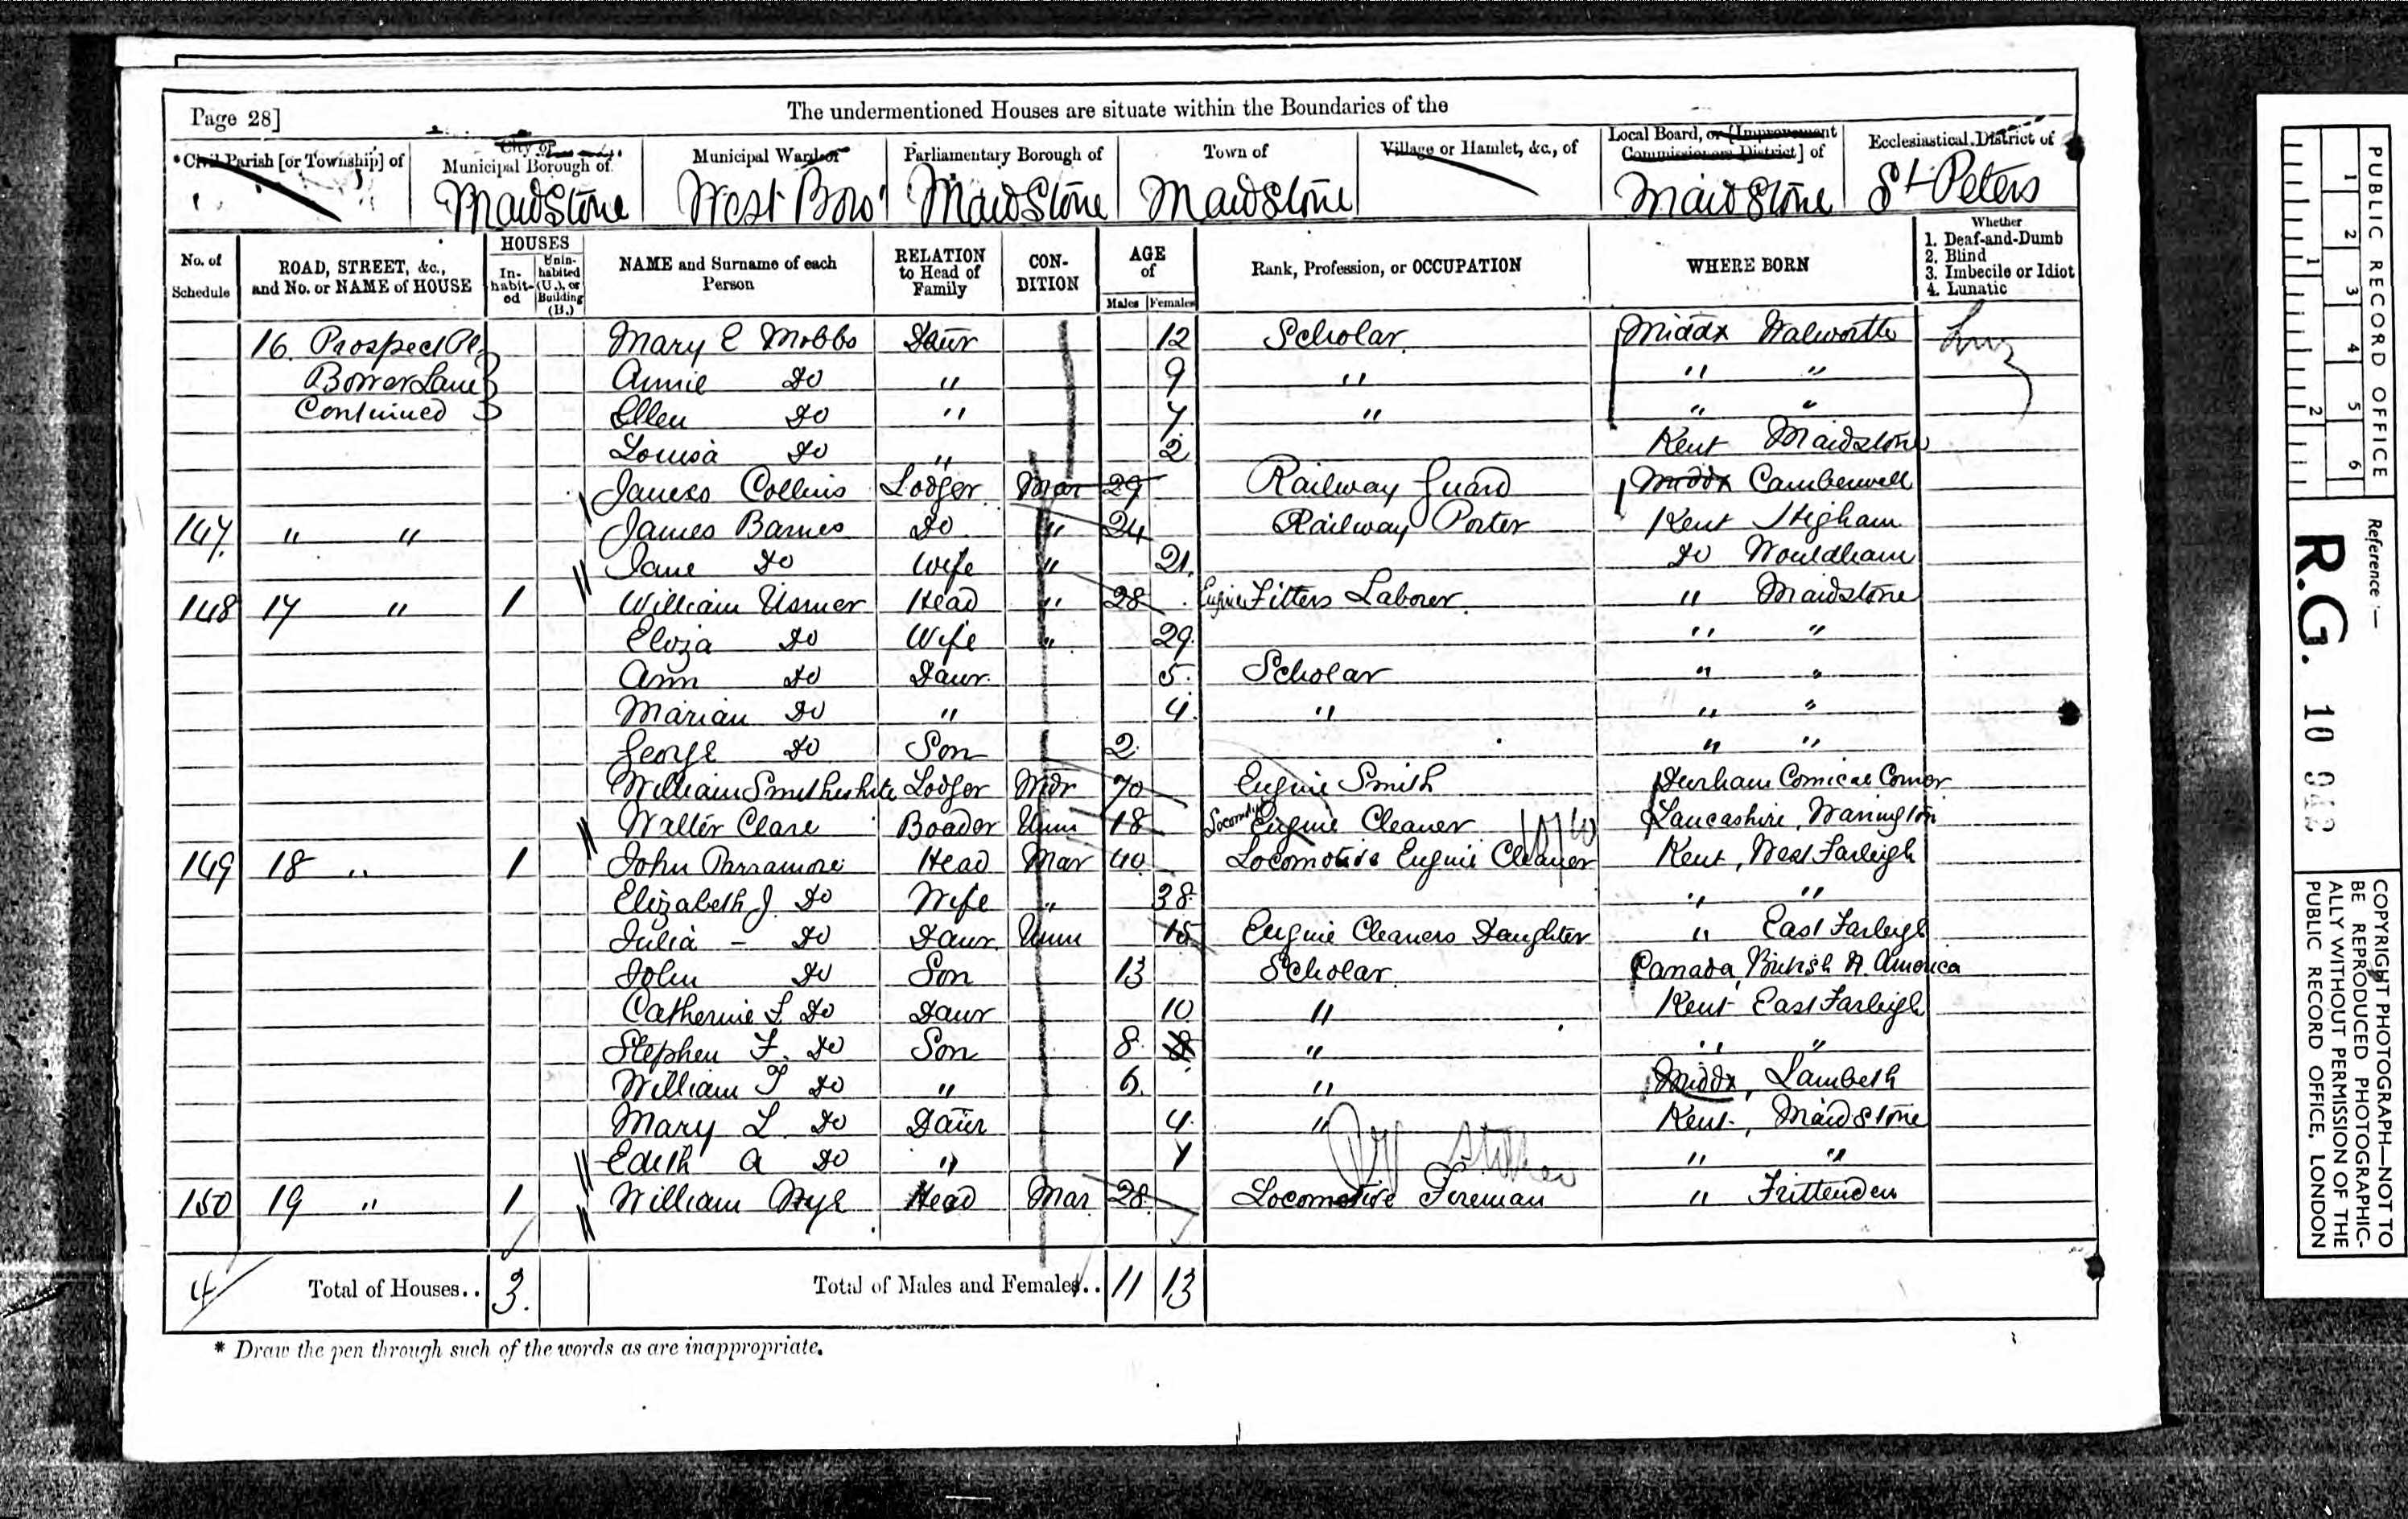 Page 28]
The undermentioned Houses are situate within the Boundaries of the
*Civil Parish [or Township] of
City or Municipal Borough of
Maidstone
Municipal Ward of
West Boro'
Parliamentary Borough of
Maidstone
Town of
Maidstone
Village or Hamlet, &c., of
Local Board, or [Improvement Commissioners District] of
Maidstone
Ecclesiastical District of
St Peters
No. of Schedule
ROAD, STREET, &c., and No. or NAME of HOUSE
HOUSES
In-habit-ed
Unin-habited (U.), or Building (B.)
NAME and Surname of each Person
RELATION to Head of Family
CON-DITION
AGE of
Males
Females
Rank, Profession, or OCCUPATION
WHERE BORN
Whether
1. Deaf-and-Dumb
2. Blind
3. Imbecile or Idiot
4. Lunatic
16. Prospect Pl. Mary E Mobbs Daur 12 Scholar Middx Walworth
Bower Lane Annie Do " 9 " " "
Continued Ellen Do " 7 " " "
Louisa Do " 2 Kent Maidstone
James Collins Lodger Mar 29 Railway Guard Middx Camberwell
147 " " James Barnes Do " 24 Railway Porter Kent Higham
Jane Do Wife " 21 Do Wouldham
148 17 " 1 William Usmer Head " 28 Engine Fitters Laborer " Maidstone
Eliza Do Wife " 29 " "
Ann Do Daur 5 Scholar " "
Marian Do " 4 " " "
George Do Son 2 " "
William Lodger Wdr 70 Engine Smith Durham
Walter Clare Boader Unm 18 Locomotive Engine Cleaner Lancashire, Warrington
149 18 " 1 John Parramore Head Mar 40 Locomotive Engine Cleaner Kent, West Farleigh
Elizabeth J. Do Wife " 38 " "
Julia - Do Daur Unm 15 Engine Cleaners Daughter " East Farleigh
John Do Son 13 Scholar Canada, British N. America
Catherine L Do Daur 10 " Kent East Farleigh
Stephen F. Do Son 8 8 " " "
William T Do " 6 " Middx, Lambeth
Mary L Do Daur 4 " Kent, Maidstone
Edith A Do " " "
150 19 " 1 William Head Mar 28 Locomotive Fireman " Frittenden
4
Total of Houses.. 3.
Total of Males and Females.. 11 13
* Draw the pen through such of the words as are inappropriate.
PUBLIC RECORD OFFICE
1 2 3 4 5 6
1 2
Reference :—
R.G. 10 942
COPYRIGHT PHOTOGRAPH—NOT TO
BE REPRODUCED PHOTOGRAPHIC-
ALLY WITHOUT PERMISSION OF THE
PUBLIC RECORD OFFICE, LONDON